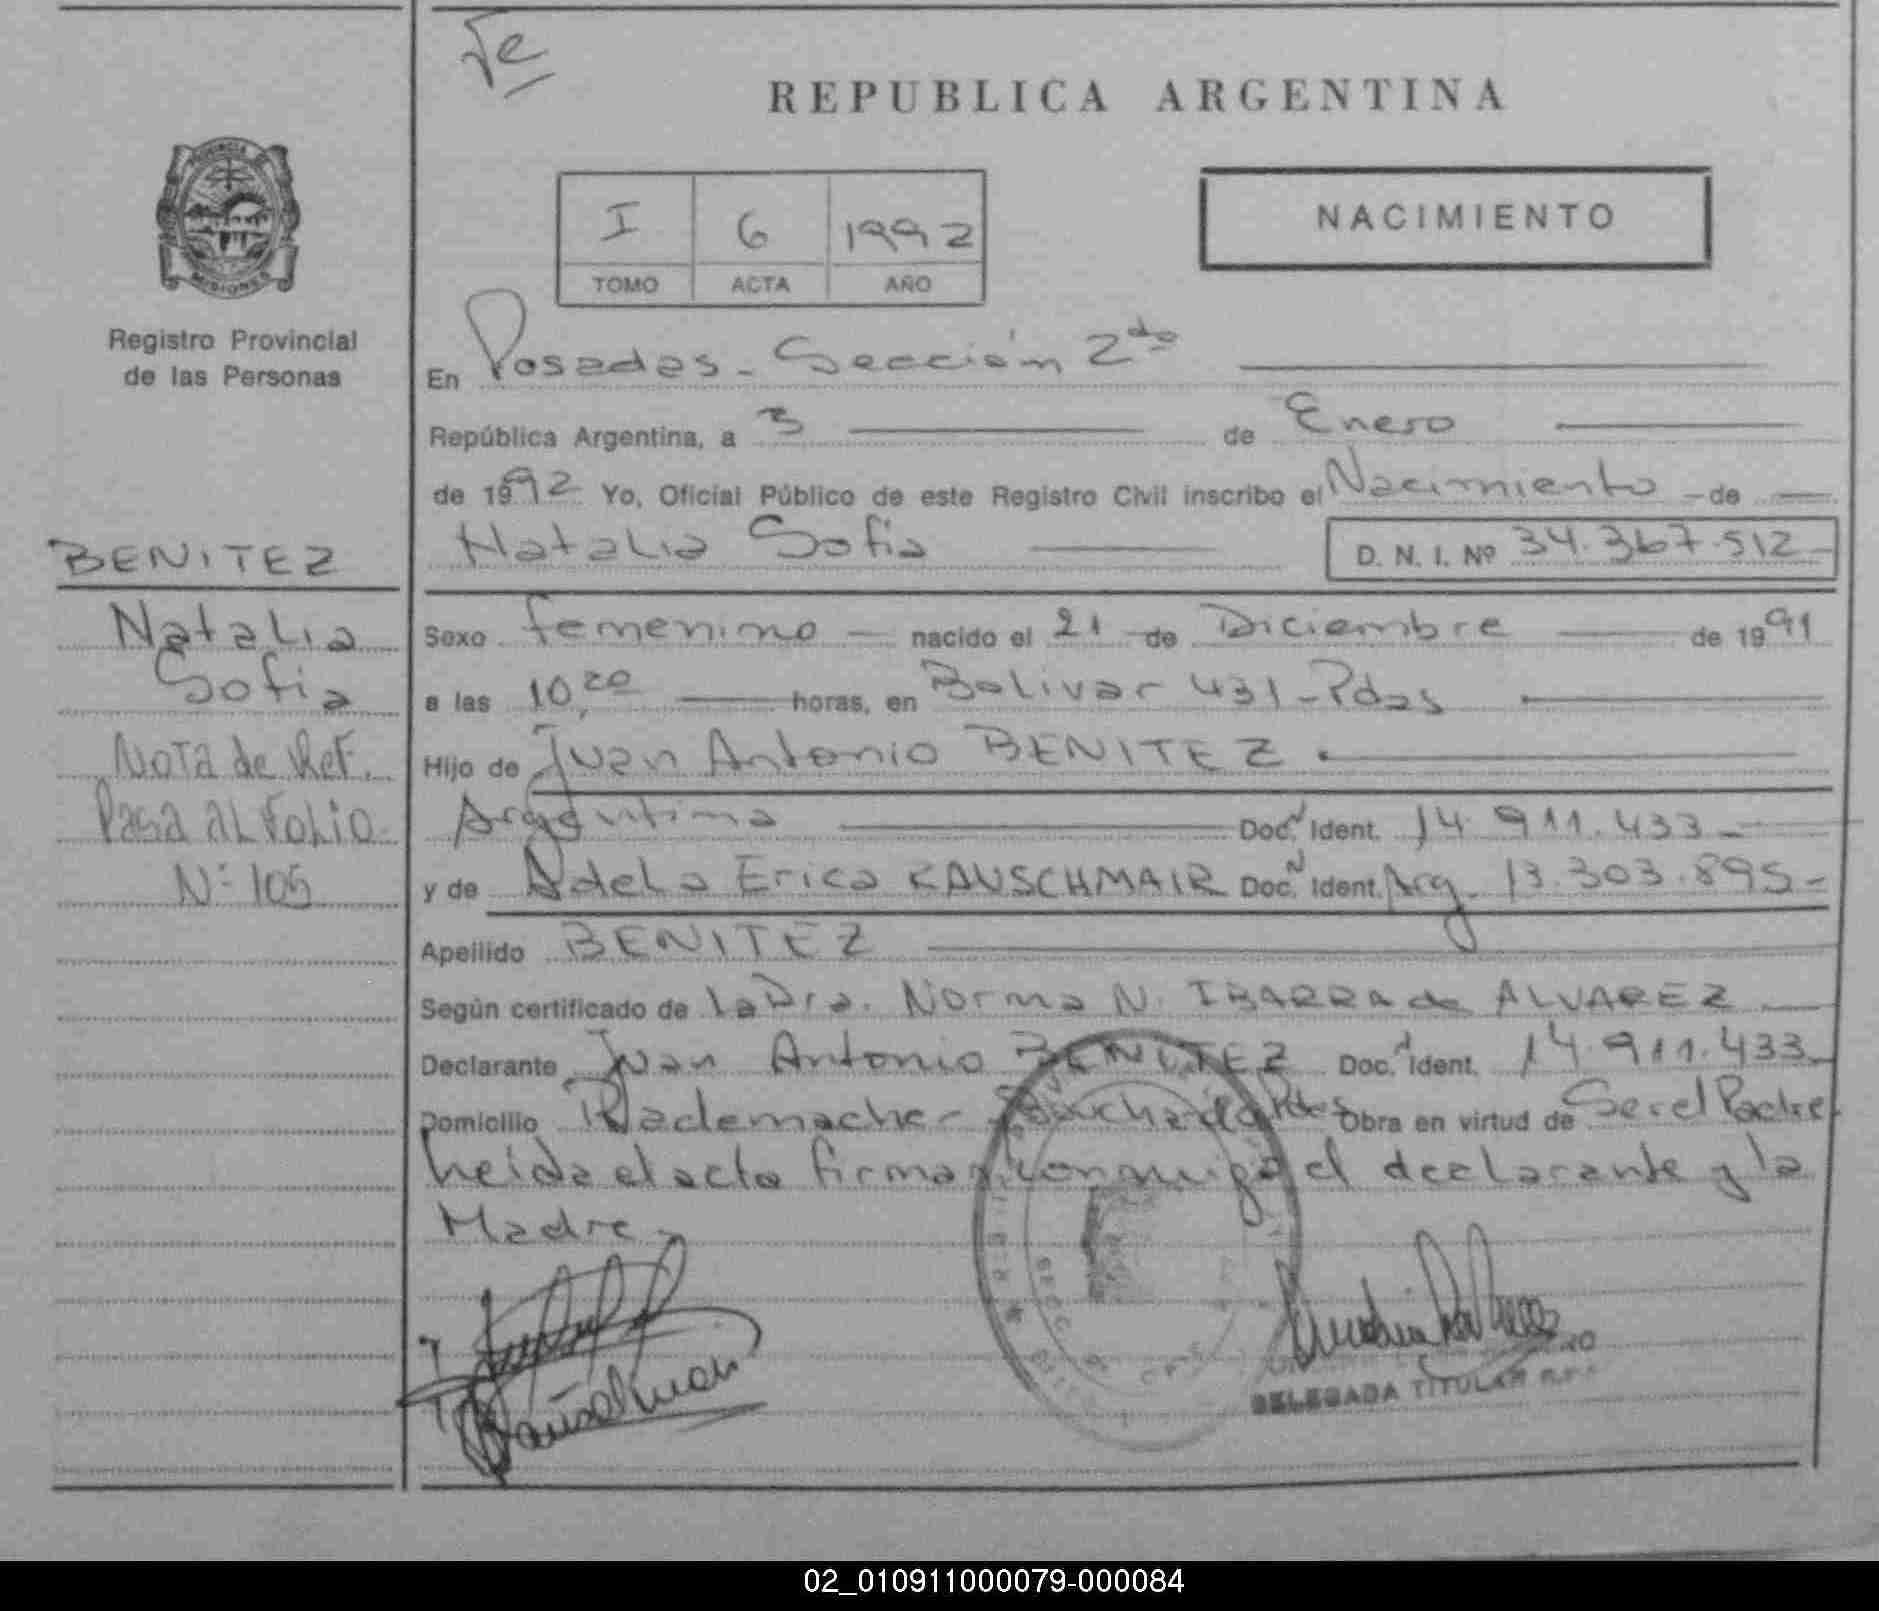 REPUBLICA ARGENTINA
PROVINCIA DE
MISIONES
Registro Provincial
de las Personas
I 6 1992
TOMO ACTA AÑO
NACIMIENTO
En Posadas - Sección 2da
República Argentina, a 3 de Enero
de 1992 Yo, Oficial Público de este Registro Civil inscribo el Nacimiento - de
Natalia Sofia D. N. I. Nº 34.367.512
BENITEZ
Natalia
Sofia
Nota de Ref.
Pasa al Folio
Nº 105
Sexo femenino nacido el 21 de Diciembre de 1991
a las 10,20 horas, en Bolivar 431 - Pdas
Hijo de Juan Antonio BENITEZ
Argentino Doc. Ident. 14.911.433
y de Adela Erica KAUSCHMAIR Doc. Ident. Arg. 13.303.895
Apellido BENITEZ
Según certificado de la Dra. Norma N. IBARRA de ALVAREZ
Declarante Juan Antonio BENITEZ Doc. Ident. 14.911.433
Domicilio Rademacher - Pdas Obra en virtud de Ser el Padre
Leida el acta firman conmigo el declarante y la
Madre
DELEGADA TITULAR
02_010911000079-000084